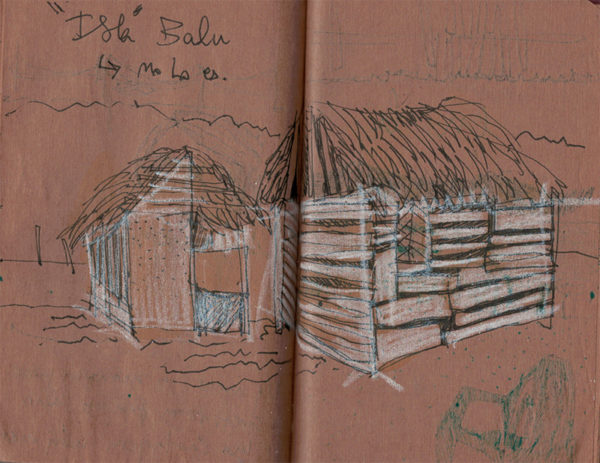 "Isla" Balu
↳ No lo es.